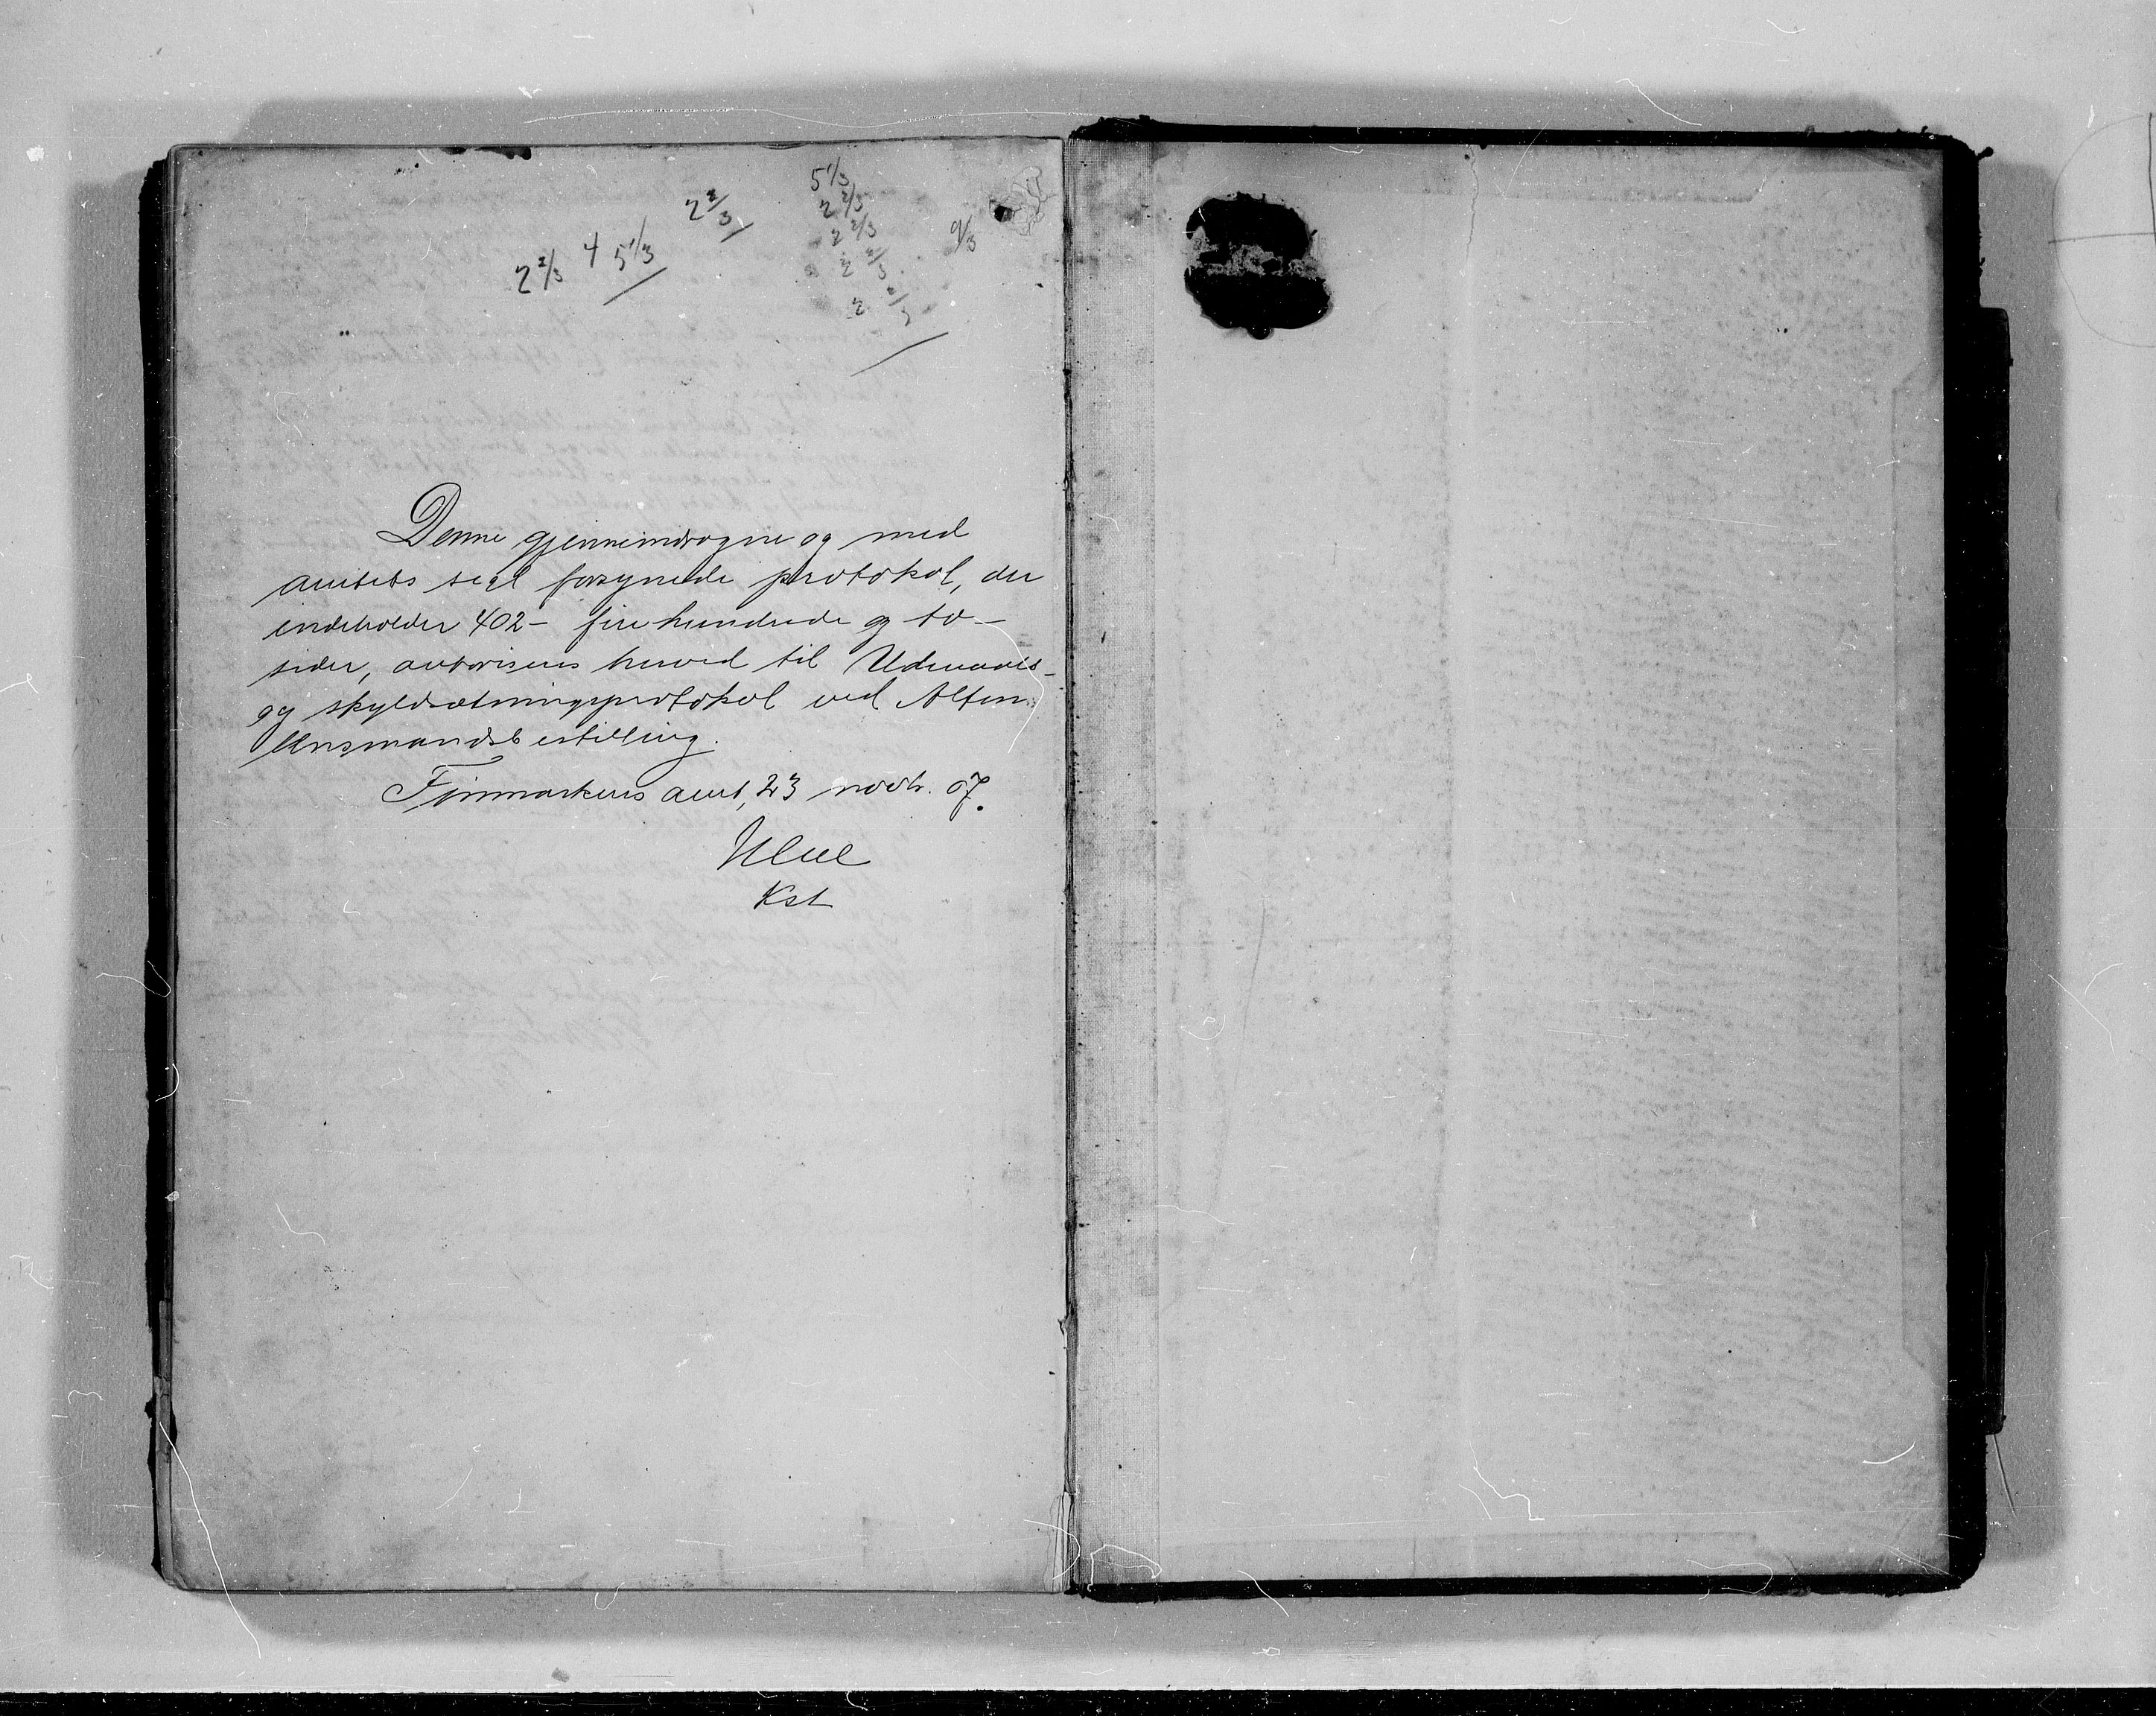 2 2/3
5 1/3
2 2/3
2 2/3
2 2/3
2 2/3
2 2/3 4 5 1/3
Denne gjennemdragne og med
amtets segl forsynede protokol, der
indeholder 402 - fire hundrede og to -
sider, autoriseres herved til Udmaals-
og skyldsætningsprotokol ved Alten
lensmandsbestilling.
Finmarkens amt, 23 novbr. 07.
Kst